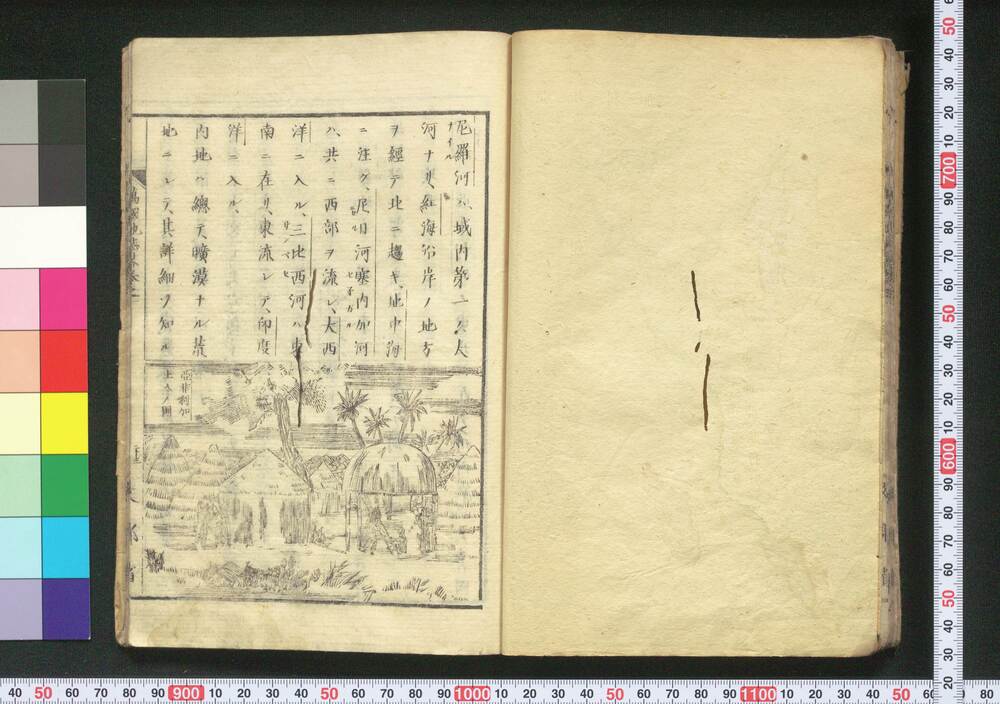 尼羅河ハ、城内第一ノ大
ナイル
河ナリ、紅海沿岸ノ地方
ヲ經テ北ニ趨キ、地中海
ニ注グ、尼日河塞内加河
セ子ガル
ハ、共ニ西部ヲ流レ、大西
洋ニ入ル、三比西河ハ東
サンベセ
南ニ在リ、東流レテ、印度
洋ニ入ル、
内地ハ總テ曠漠ナル荒
地ニシテ、其詳細ヲ知ル
亞非利加
土人ノ圖